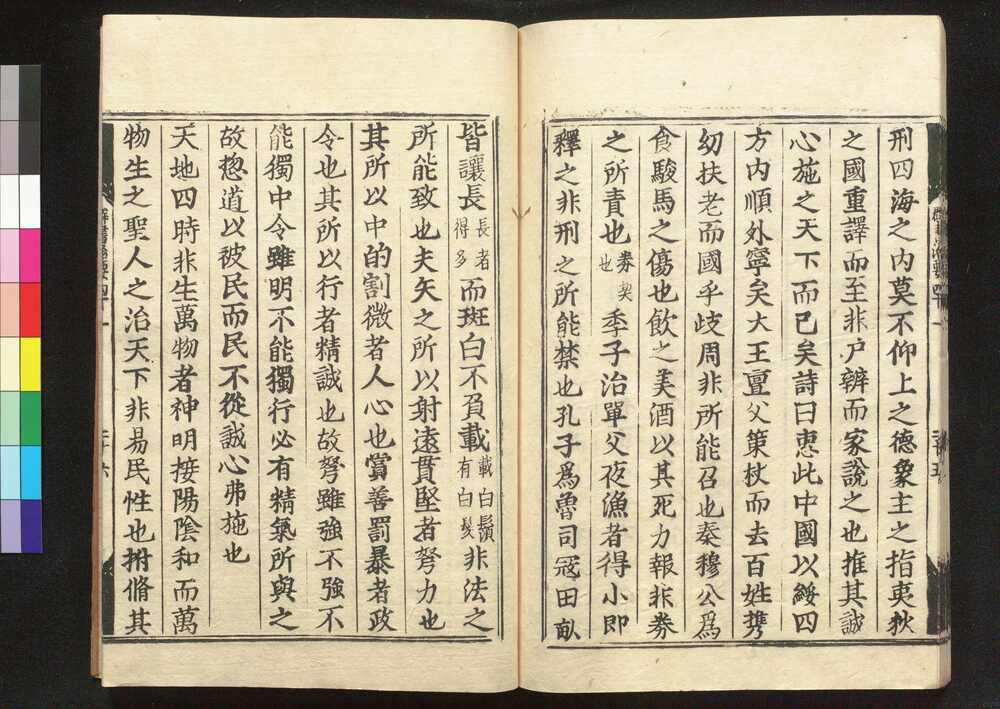 刑四海之内莫不仰上之德象主之指夷狄
之國重譯而至非戸辨而家說之也推其誠
心施之天下而已矣詩曰恵此中國以綏四
方内順外寧矣大王亶父策杖而去百姓携
幼扶老而國乎歧周非所能召也秦穆公爲
食駿馬之傷也飲之美酒以其死力報非券
之所責也券契也季子治單父夜漁者得小即
釋之非刑之所能禁也孔子爲魯司冠田畝
皆讓長長者得多而斑白不負載載白鬚有白髪非法之
所能致也夫矢之所以射遠貫堅者弩力也
其所以中的割微者人心也賞善罰暴者政
令也其所以行者精誠也故弩雖強不強不
能獨中令雖明不能獨行必有精氣所與之
故揔道以被民而民不從誠心弗施也
天地四時非生萬物者神明接陽陰和而萬
物生之聖人之治天下非易民性也拊脩其
群書治要四十一
二十六